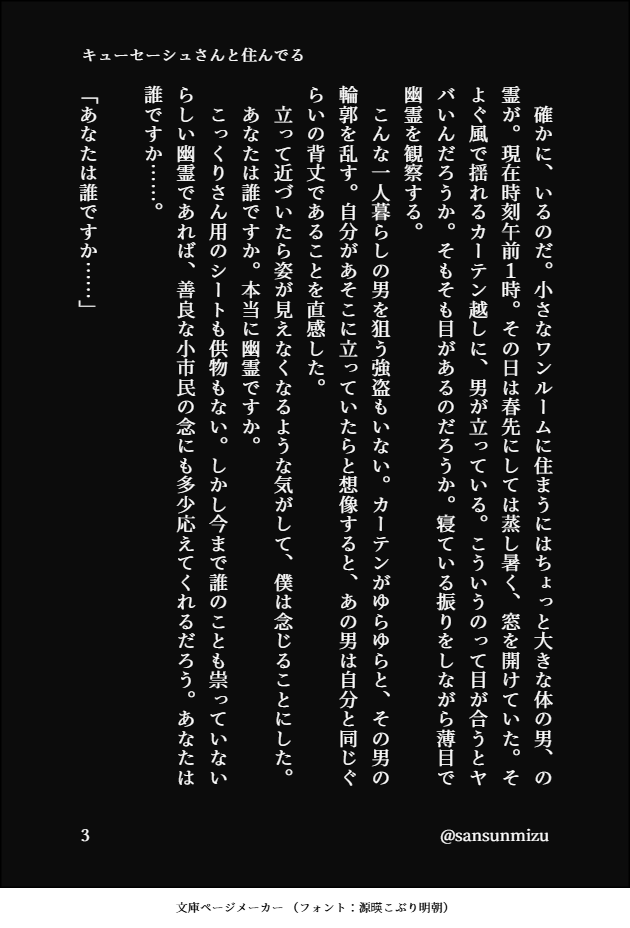 キューセーシュさんと住んでる
　確かに、いるのだ。小さなワンルームに住まうにはちょっと大きな体の男、の
霊が。現在時刻午前１時。その日は春先にしては蒸し暑く、窓を開けていた。そ
よぐ風で揺れるカーテン越しに、男が立っている。こういうのって目が合うとヤ
バいんだろうか。そもそも目があるのだろうか。寝ている振りをしながら薄目で
幽霊を観察する。
　こんな一人暮らしの男を狙う強盗もいない。カーテンがゆらゆらと、その男の
輪郭を乱す。自分があそこに立っていたらと想像すると、あの男は自分と同じぐ
らいの背丈であることを直感した。
　立って近づいたら姿が見えなくなるような気がして、僕は念じることにした。
　あなたは誰ですか。本当に幽霊ですか。
　こっくりさん用のシートも供物もない。しかし今まで誰のことも祟っていない
らしい幽霊であれば、善良な小市民の念にも多少応えてくれるだろう。あなたは
誰ですか……。
「あなたは誰ですか……」
3
@sansunmizu
文庫ページメーカー（フォント：源暎こぶり明朝）